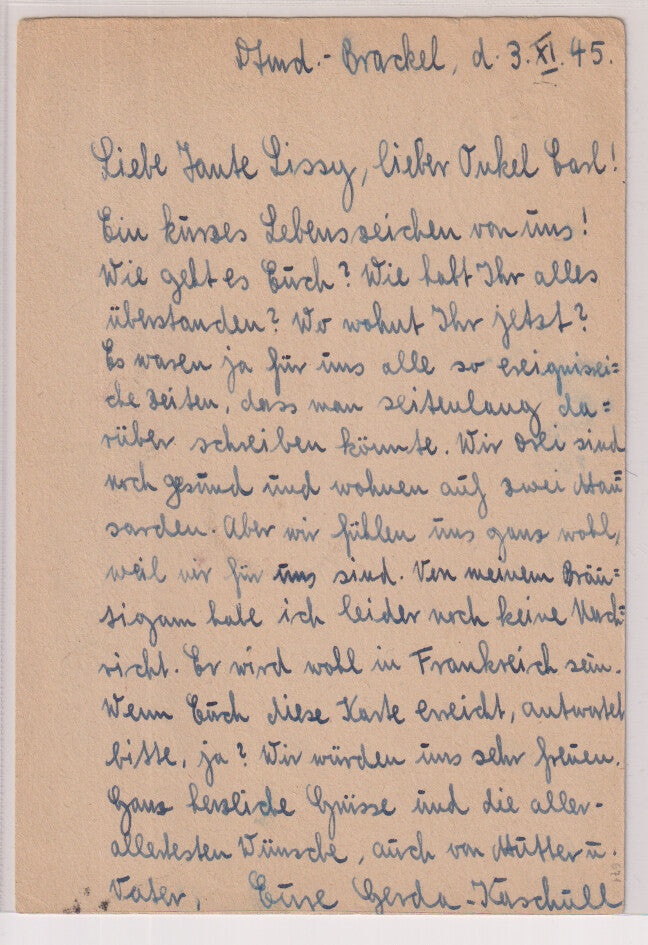 Dtmd.- Brackel, d. 3. XI. 45.
Liebe Tante Lissy, lieber Onkel Carl!
Ein kurzes Lebenszeichen von uns!
Wie geht es Euch? Wie habt Ihr alles
überstanden? Wo wohnt Ihr jetzt?
Es waren ja für uns alle so ereignisrei=
che Zeiten, dass man seitenlang da=
rüber schreiben könnte. Wir drei sind
noch gesund und wohnen auf zwei Man=
sarden. Aber wir fühlen uns ganz wohl,
weil wir für uns sind. Von meinem Bräu=
tigam habe ich leider noch keine Nach=
richt. Er wird wohl in Frankreich sein.
Wenn Euch diese Karte erreicht, antwortet
bitte, ja? Wir würden uns sehr freuen.
Ganz herzliche Grüsse und die aller-
allerbesten Wünsche, auch von Mutter u.
Vater, Eure Gerda-Kaschüll